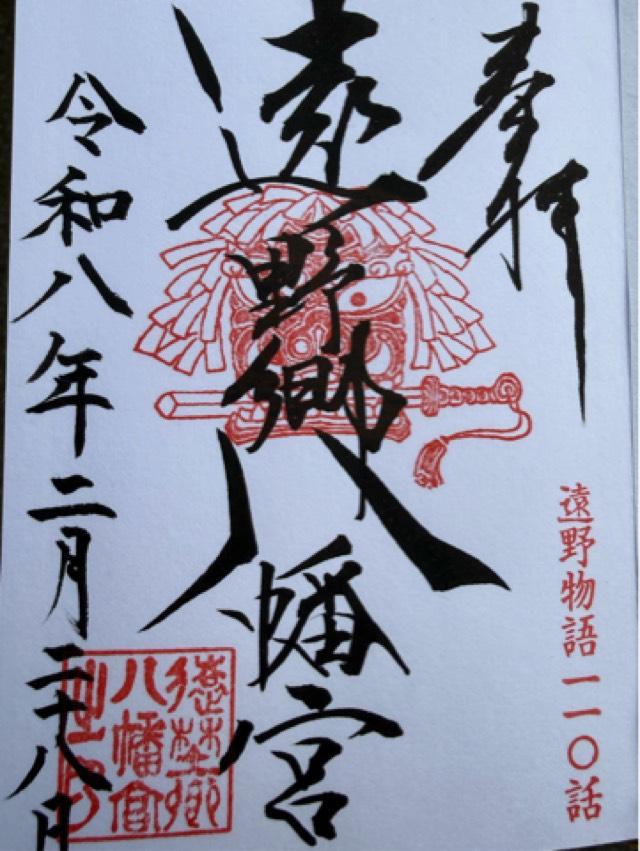 奉拝
遠野物語一一〇話
遠野郷八幡宮
令和八年二月二十八日
遠野郷
八幡宮